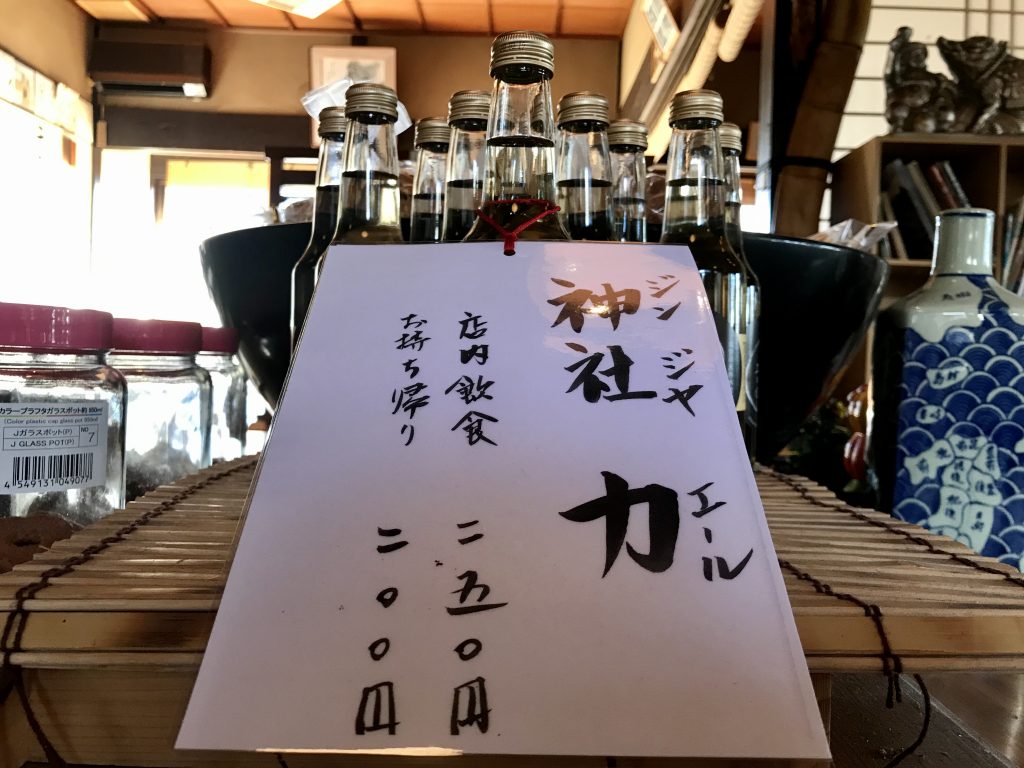 神社 力
ジンジャ エール
店内飲食 二五〇円
お持ち帰り 二〇〇円
カラープラフタガラスポット約 550ml
(Color plastic cap glass pot 550ml)
Jガラスポット(P)
J GLASS POT(P)
NO 7
4 549131 049077